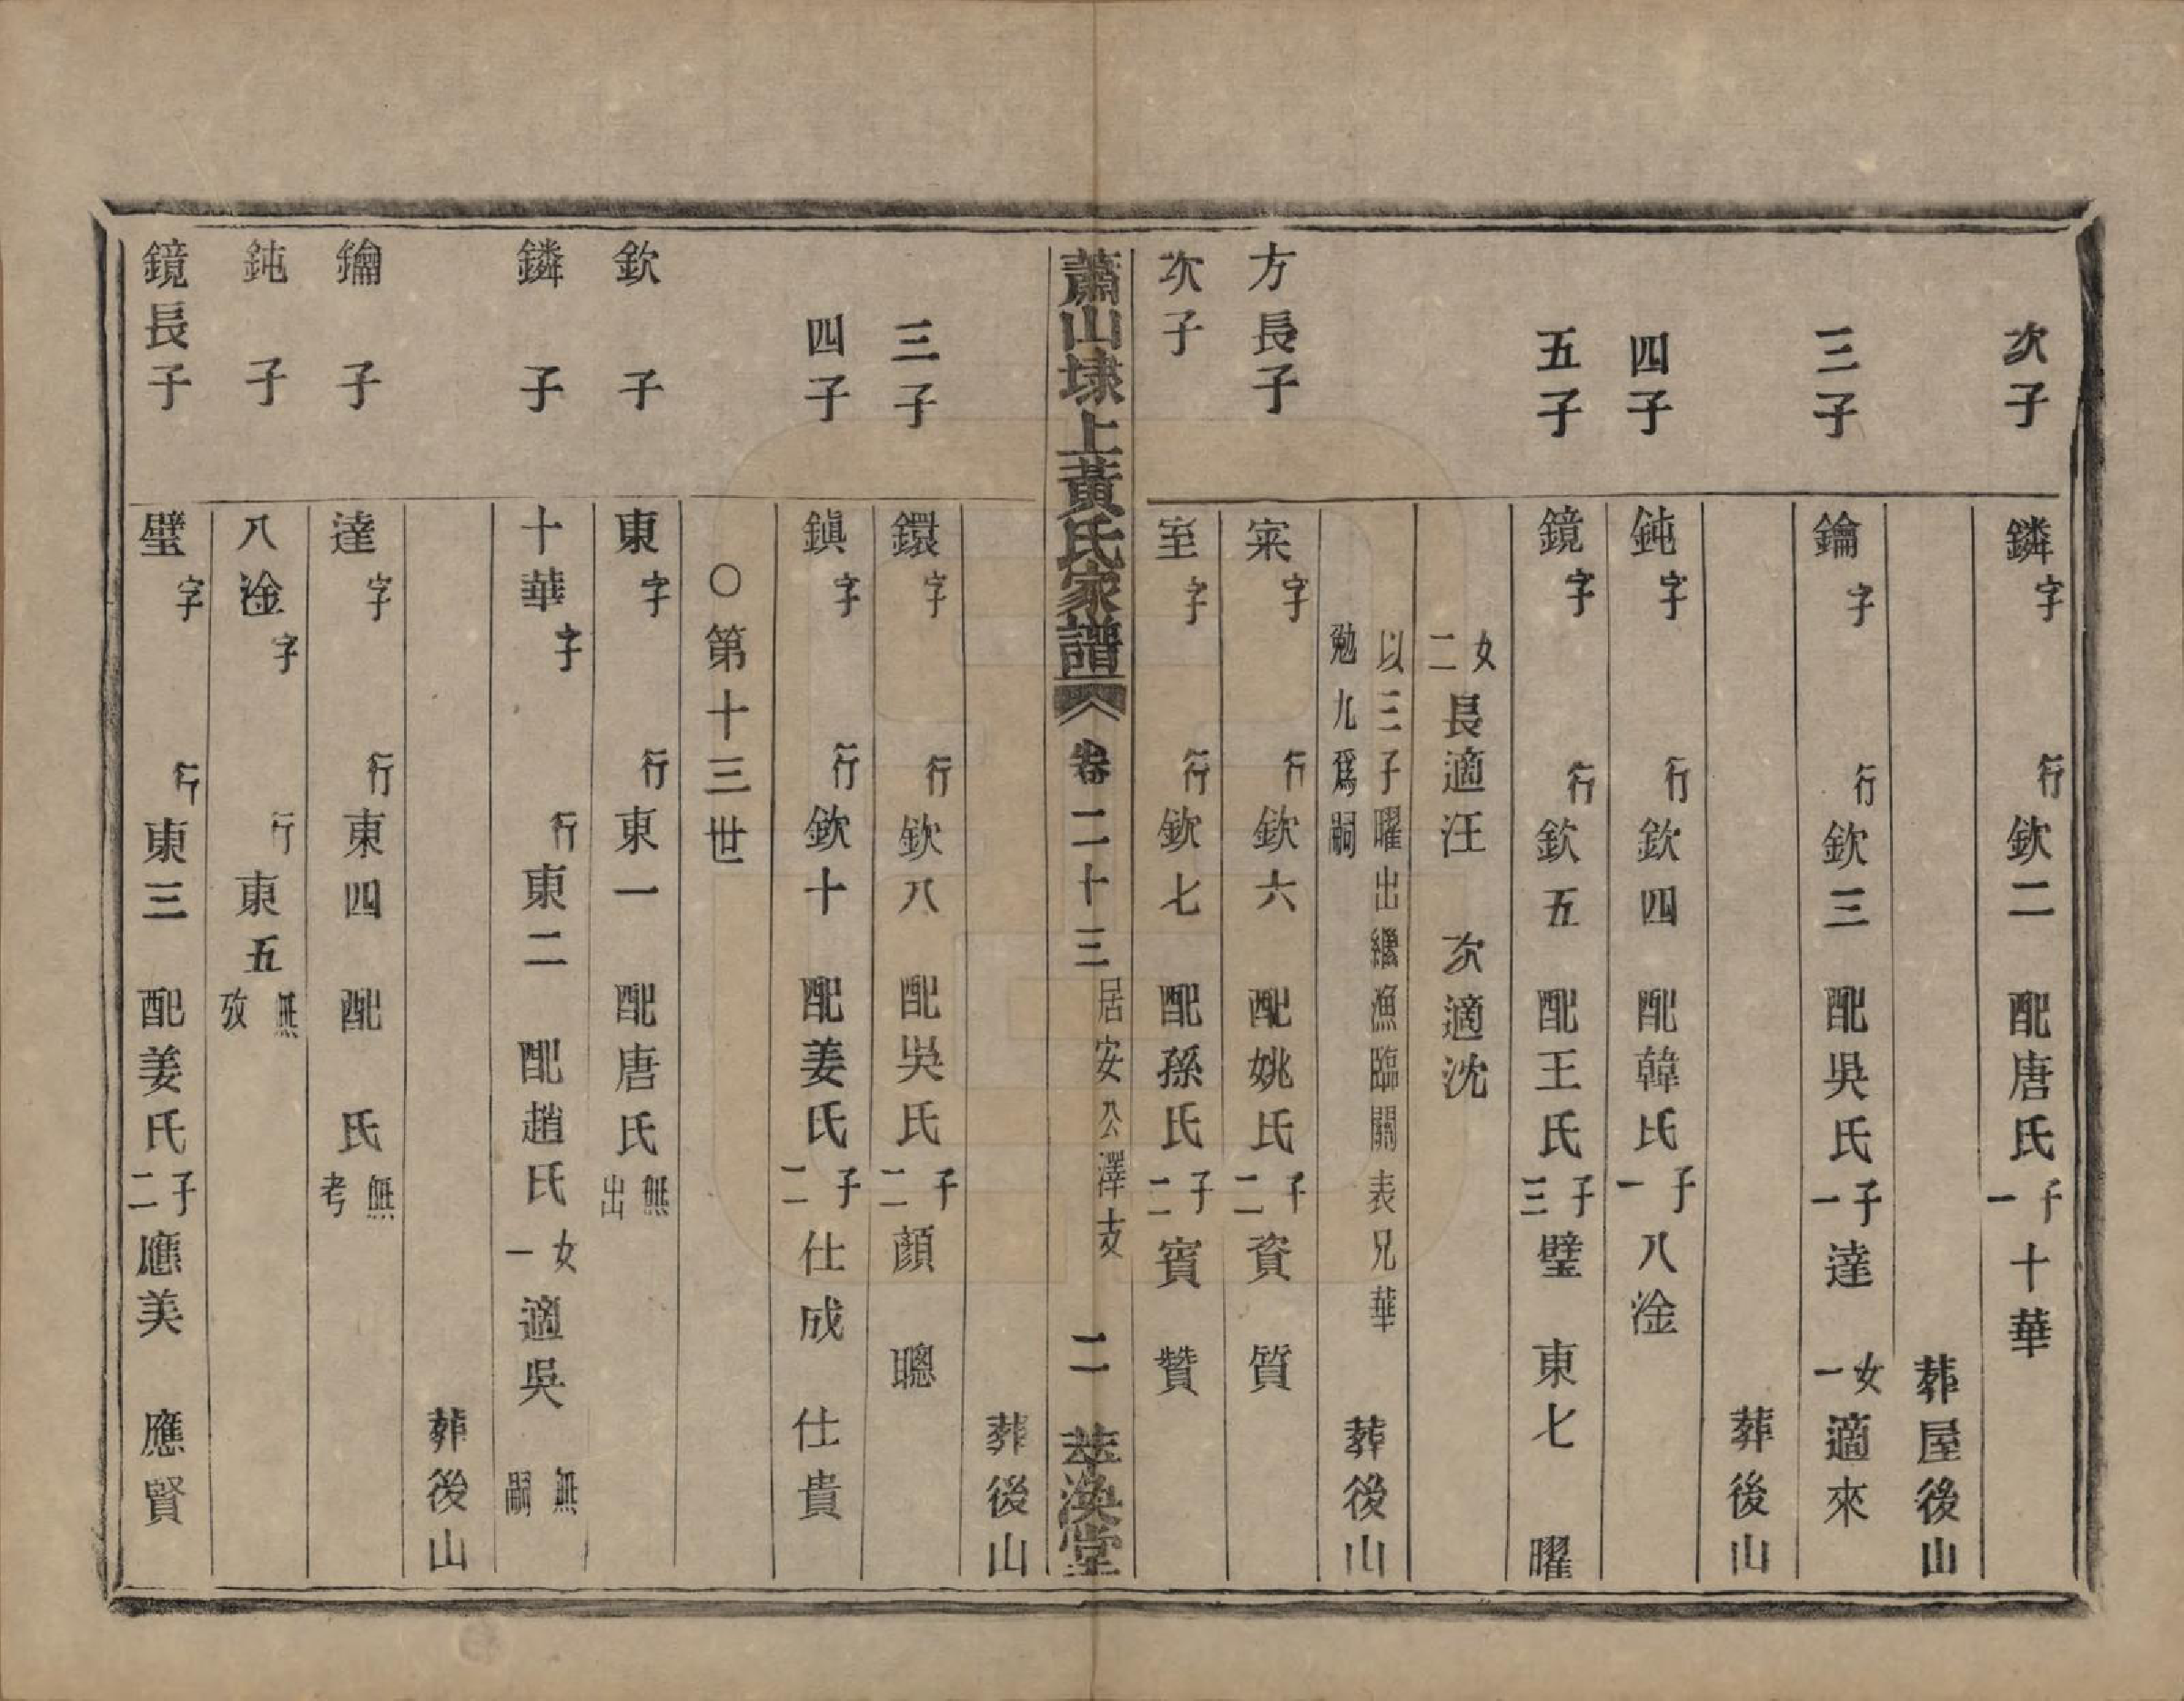 次子　鏻字　行欽二　配唐氏子一十華
葬屋後山
三子　鑰字　行欽三　配吳氏子一達　女一適來
葬後山
四子　鈍字　行欽四　配韓氏子一八淦
五子　鏡字　行欽五　配王氏子三璧　東七　曜
女二長適汪　次適沈
以三子曜出繼漁臨關表兄華勉九爲嗣　葬後山
方長子　寀字　行欽六　配姚氏子二資　質
次子　至字　行欽七　配孫氏子二賓　贊
蕭山埭上黃氏家譜　卷二十三　居安公澤支　二　萃渙堂
葬後山
三子　鐶字　行欽八　配吳氏子二顏　聰
四子　鎭字　行欽十　配姜氏子二仕成　仕貴
○第十三世
欽　子　東字　行東一　配唐氏無出
鏻　子　十華字　行東二　配趙氏女一適吳　無嗣
葬後山
鑰　子　達字　行東四　配　氏無考
鈍　子　八淦字　行東五無攷
鏡長子　璧字　行東三　配姜氏子二應美　應賢